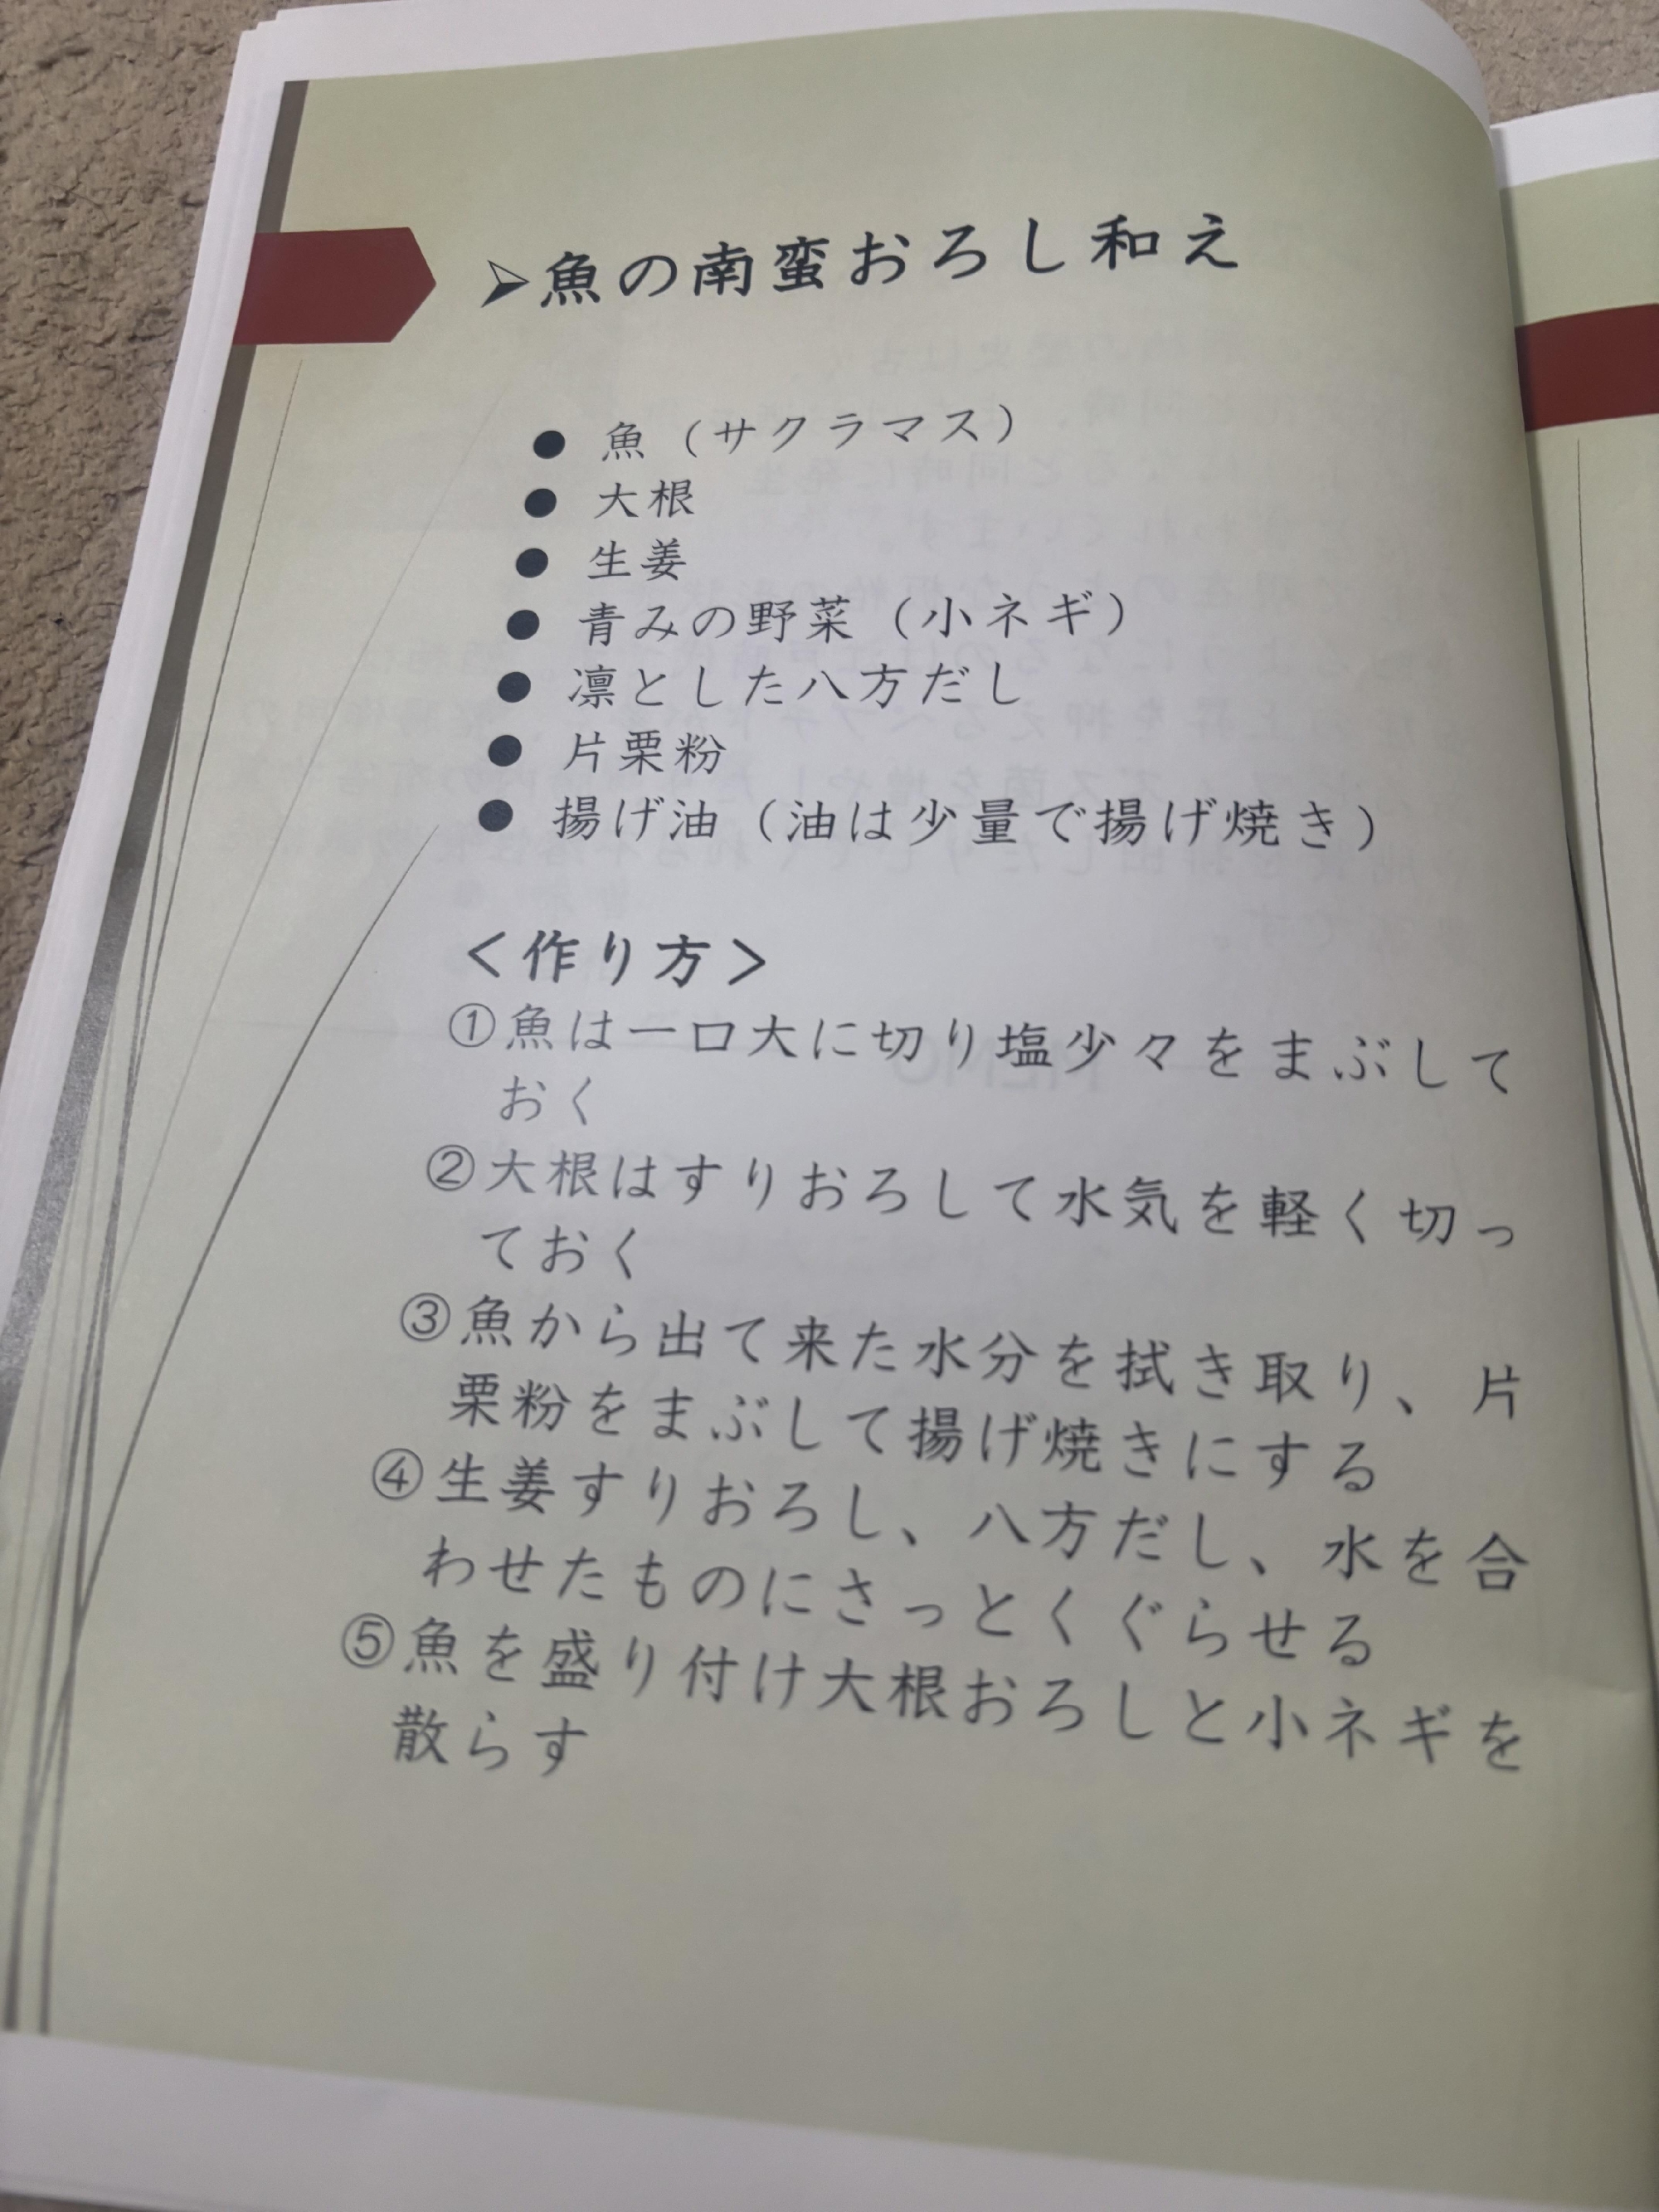 ➢魚の南蛮おろし和え
● 魚（サクラマス）
● 大根
● 生姜
● 青みの野菜（小ネギ）
● 凛とした八方だし
● 片栗粉
● 揚げ油（油は少量で揚げ焼き）
＜作り方＞
①魚は一口大に切り塩少々をまぶして
おく
②大根はすりおろして水気を軽く切っ
ておく
③魚から出て来た水分を拭き取り、片
栗粉をまぶして揚げ焼きにする
④生姜すりおろし、八方だし、水を合
わせたものにさっとくぐらせる
⑤魚を盛り付け大根おろしと小ネギを
散らす